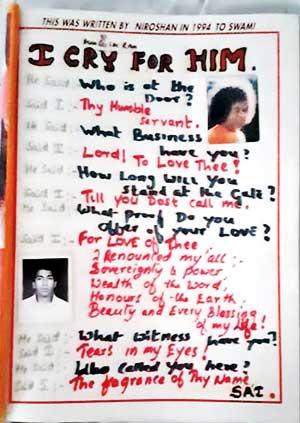 THIS WAS WRITTEN BY NIROSHAN IN 1994 TO SWAMI
I CRY FOR HIM.
He Said:- Who is at the
Door?
Said I :- Thy Humble
Servant.
He Said:- What Business
have you?
Said I :- Lord! To Love Thee!
He Said:- How Long Will You
Stand at the Gate?
Said I :- Till you Dost call me.
He Said:- What Proof Do you
Offer of your LOVE?
Said I :- For LOVE of Thee,
I Renounced my all:-
Sovereignty & power,
Wealth of the World,
Honours of the Earth,
Beauty and Every Blessing
of my Life!
He Said:- What Witness have you?
Said I :- Tears in my Eyes!
He Said:- Who Called You here?
Said I :- The fragrance of Thy Name,
SAI.